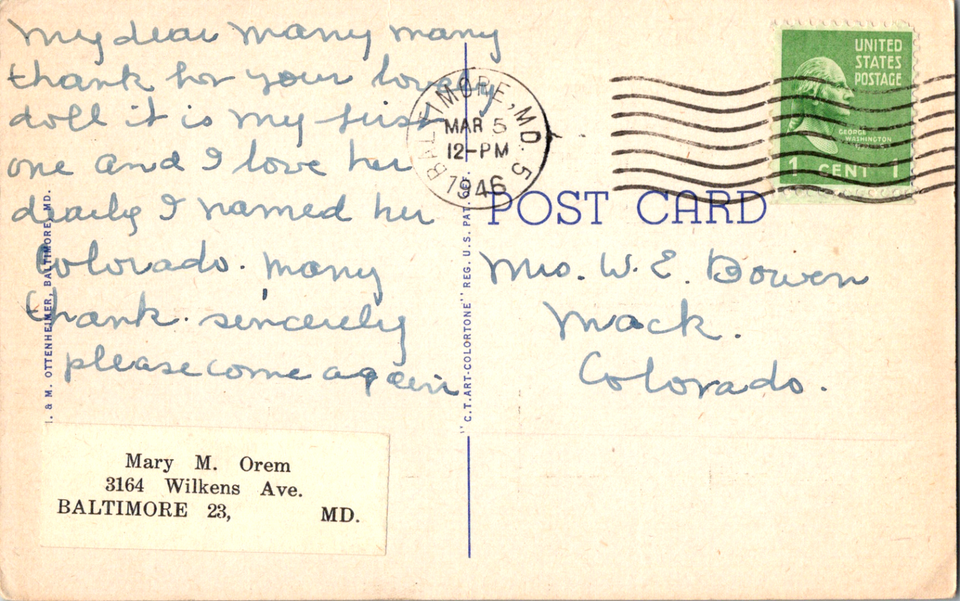 My dear many many
thank for your lovely
doll it is my first
one and I love her
dearly I named her
Colorado. Many
thank. sincerely
please come again
Mary M. Orem
3164 Wilkens Ave.
BALTIMORE 23, MD.
I. & M. OTTENHEIMER, BALTIMORE, MD.
"C.T. ART-COLORTONE" REG. U.S. PAT. OFF.
BALTIMORE, MD. 5
MAR 5
12-PM
1946
UNITED
STATES
POSTAGE
GEORGE
WASHINGTON
1 CENT 1
POST CARD
Mrs. W. E. Bowen
Mack.
Colorado.